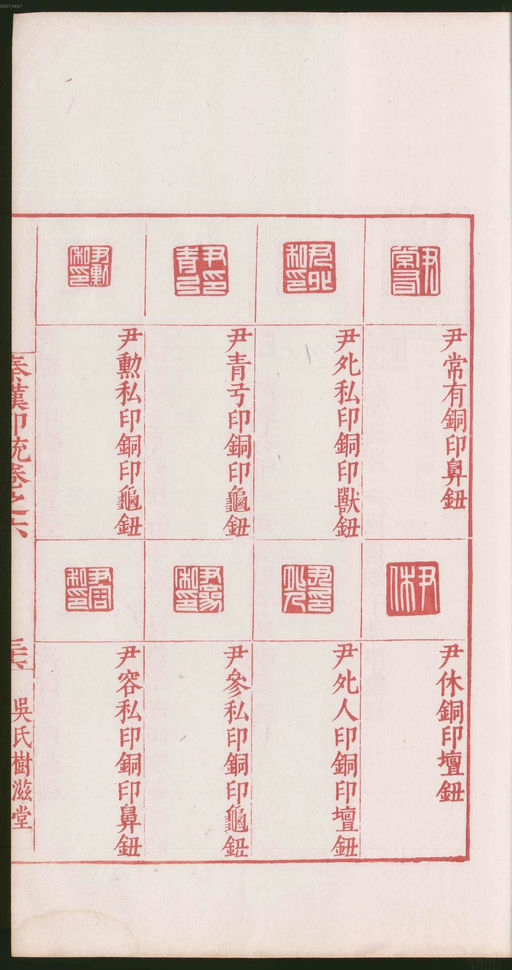 尹常有銅印鼻鈕
尹𠨞私印銅印獸鈕
尹青㝵印銅印龜鈕
尹勲私印銅印龜鈕
尹休銅印壇鈕
尹𠨞人印銅印壇鈕
尹參私印銅印龜鈕
尹容私印銅印鼻鈕
秦漢印統卷之六
吳氏樹滋堂
00073467